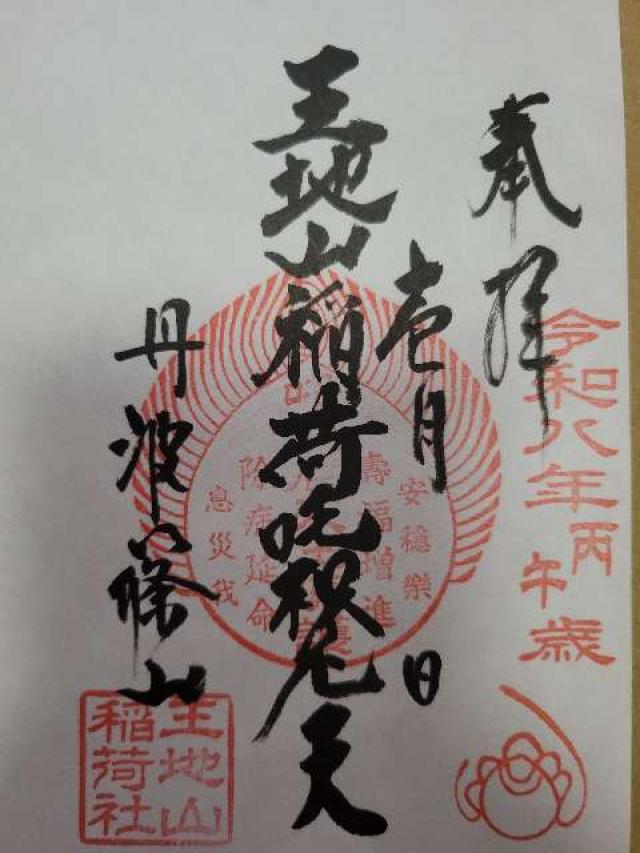 奉拝
令和八年丙午歳
壱月 日
王地山稲荷吒枳尼天
丹波篠山
安穏樂
壽福増進
除症延命
息災我
王地山
稲荷社